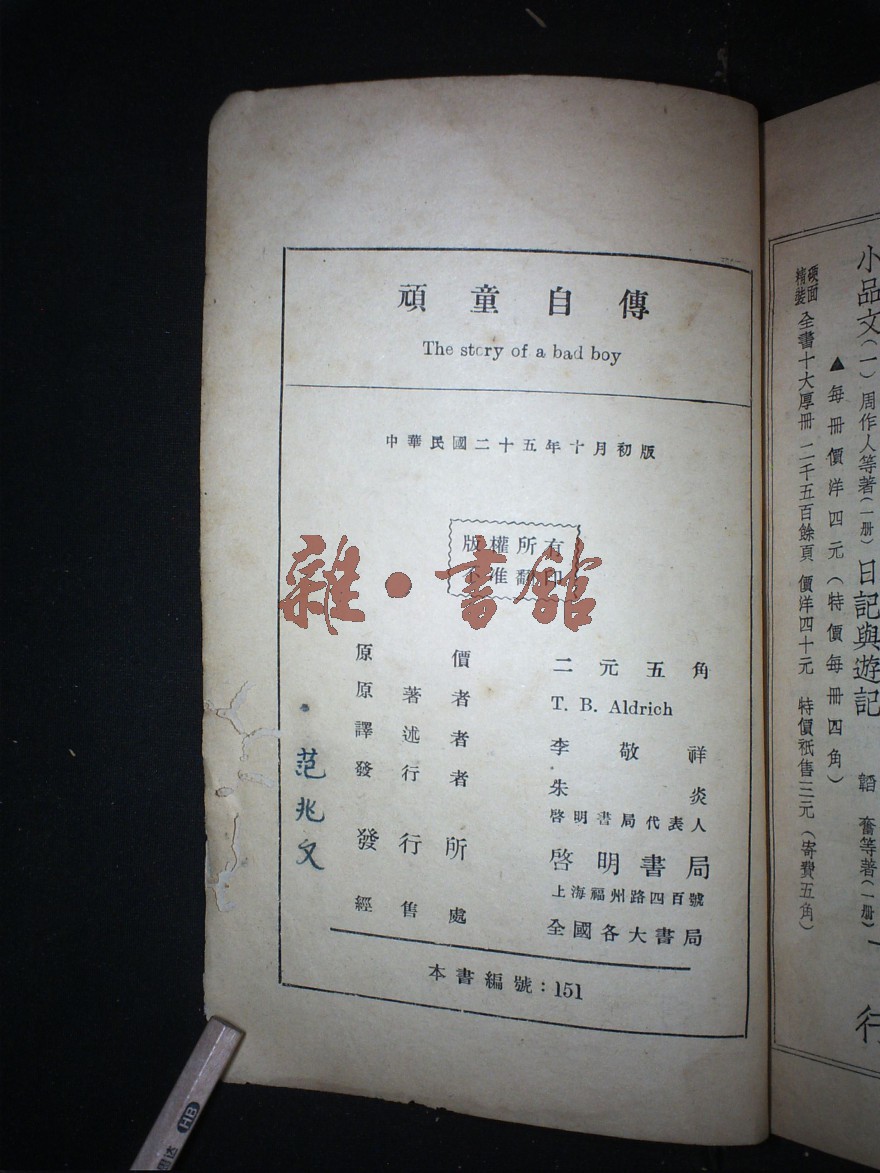 頑童自傳
The story of a bad boy
中華民國二十五年十月初版
版權所有
不准翻印
雜·書館
原價 二元五角
原著者 T. B. Aldrich
譯述者 李敬祥
發行者 朱炎
啓明書局代表人
發行所 啓明書局
上海福州路四百號
經售處 全國各大書局
本書編號：151
范兆文
小品文(一)周作人等著(一册) 日記與遊記 韜奮等著(一册)
▲每冊價洋四元(特價每冊四角)
硬面精裝 全書十大厚冊 二千五百餘頁 價洋四十元 特價祇售三元(寄費五角)
行
HB